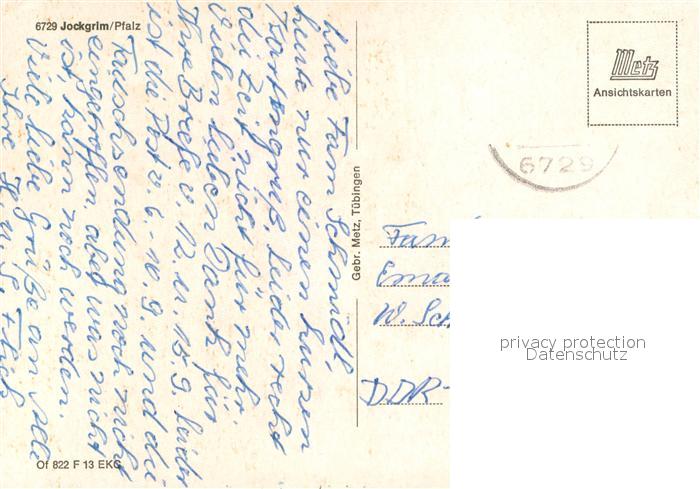 6729 Jockgrim/Pfalz
Liebe Fam Schmidt,
heute nur einen kurzen
Kartengruß, leider reicht
die Zeit nicht für mehr.
Vielen lieben Dank für
Ihre Briefe v. 12. u. 15.9. Leider
ist die Post v. 6.-10.9. und die
Tauschsendung noch nicht
eingetroffen aber was nicht
ist, kann noch werden.
Viele liebe Grüße an Alle
Ihre H. u. S.
Of 822 F 13 EKC
Gebr. Metz, Tübingen
Metz
Ansichtskarten
6729
Fam
Ema
W. Sch
DDR-
privacy protection
Datenschutz